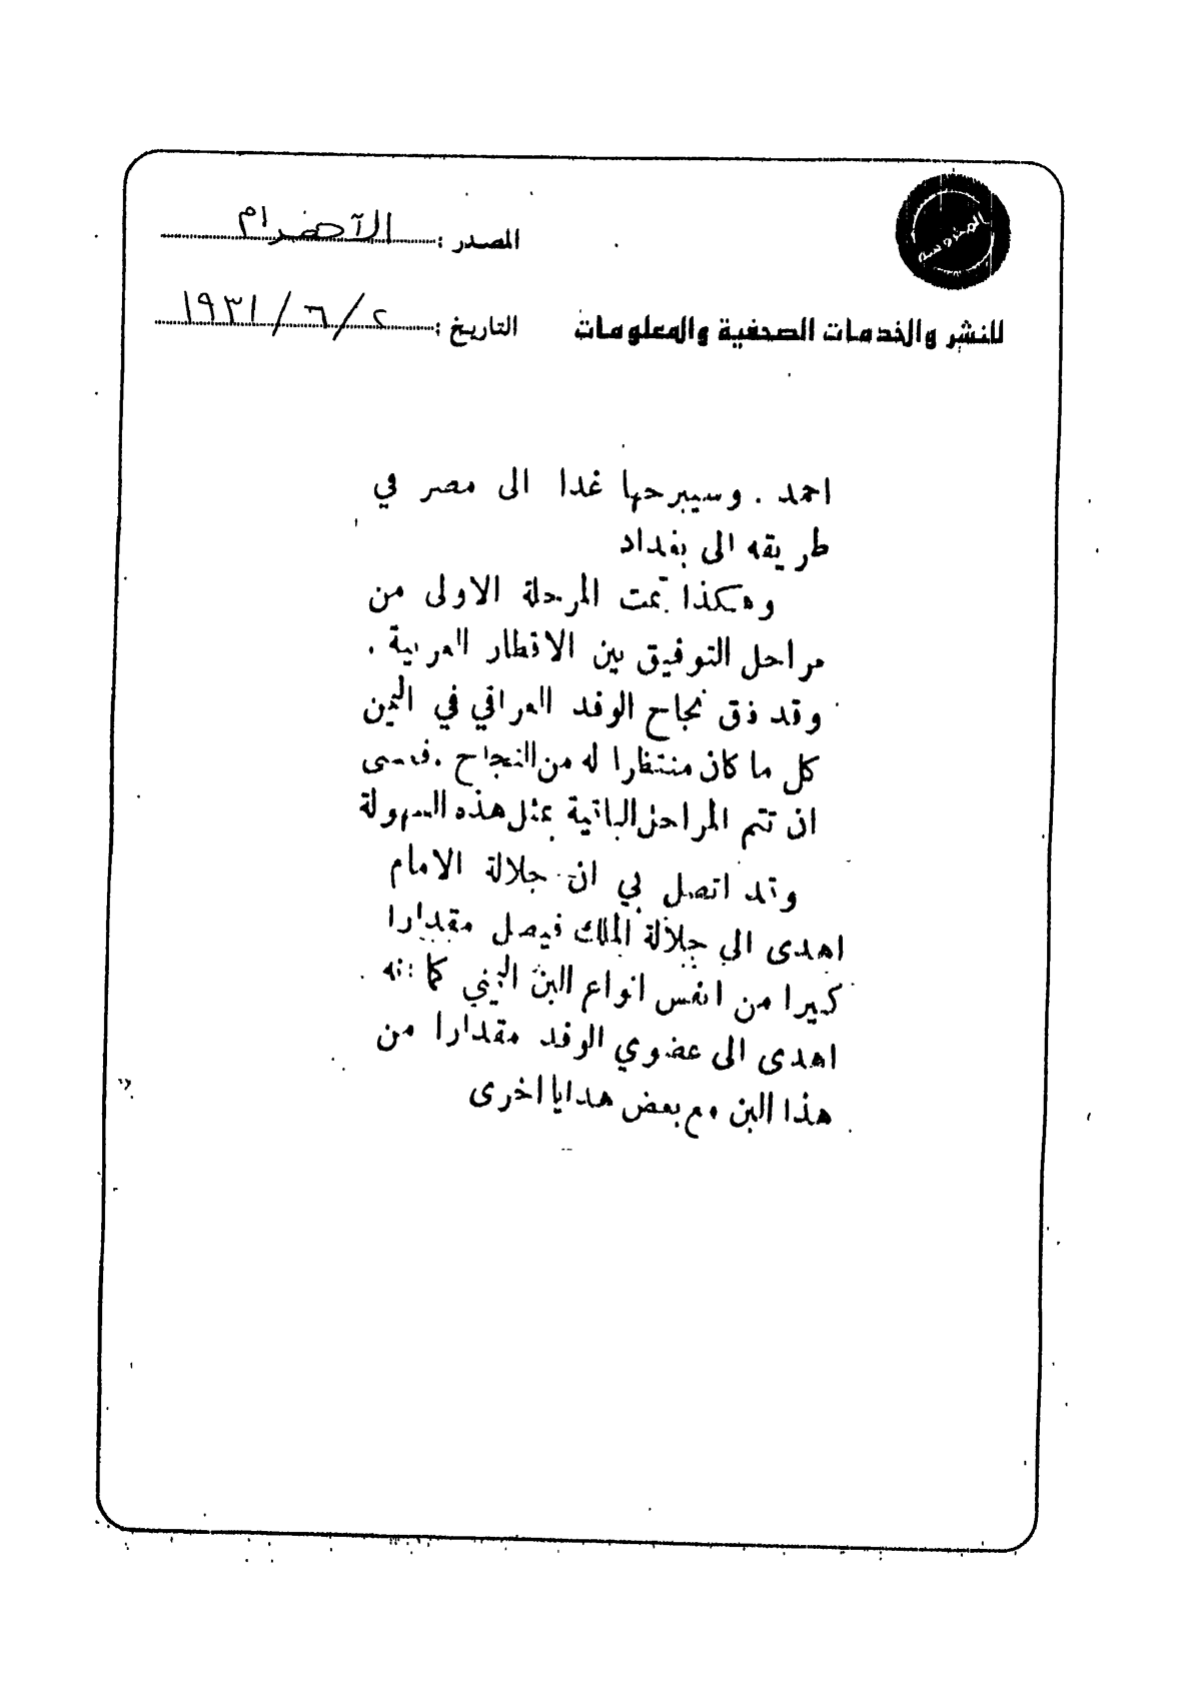 المحروسة
المصدر : الأهرام
للنشر والخدمات الصحفية والمعلومات
التاريخ : ٢ / ٦ / ١٩٣١
احمد . وسيبرحها غدا الى مصر في
طريقه الى بغداد
وهكذا تمت المرحلة الاولى من
مراحل التوفيق بين الاقطار العربية .
وقد فاق نجاح الوفد العراقي في اليمن
كل ما كان منتظرا له من النجاح . فعسى
ان تتم المراحل الباقية بمثل هذه السهولة
وقد اتصل بي ان جلالة الامام
اهدى الى جلالة الملك فيصل مقدارا
كبيرا من انفس انواع البن اليمني كما انه
اهدى الى عضوي الوفد مقدارا من
هذا البن مع بعض هدايا اخرى